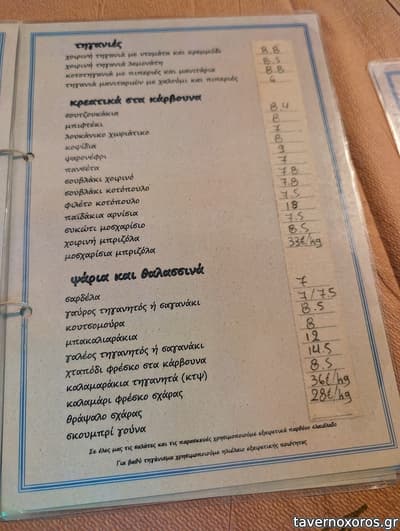 τηγανιές
χοιρινή τηγανιά με ντομάτα και κρεμμύδι 8.8
χοιρινή τηγανιά λεμονάτη 8.5
κοτοτηγανιά με πιπεριές και μανιτάρια 8.8
τηγανιά μανιταριών με χαλούμι και πιπεριές 6
κρεατικά στα κάρβουνα
σουτζουκάκια 8.4
μπιφτέκι 8
λουκάνικο χωριάτικο 7
κοψίδια 8
ψαρονέφρι 9
πανσέτα 7
σουβλάκι χοιρινό 7.8
σουβλάκι κοτόπουλο 7.8
φιλέτο κοτόπουλο 7.5
παϊδάκια αρνίσια 18
συκώτι μοσχαρίσιο 7.5
χοιρινή μπριζόλα 8.5
μοσχαρίσια μπριζόλα 33€/kg
ψάρια και θαλασσινά
σαρδέλα 7
γαύρος τηγανητός ή σαγανάκι 7/7.5
κουτσομούρα 8.5
μπακαλιαράκια 8
γαλέος τηγανητός ή σαγανάκι 12
χταπόδι φρέσκο στα κάρβουνα 14.5
καλαμαράκια τηγανητά (κτψ) 8.5
καλαμάρι φρέσκο σχάρας 36€/kg
θράψαλο σχάρας 28€/kg
σκουμπρί γούνα
Σε όλες μας τις σαλάτες και τις παρασκευές χρησιμοποιούμε εξαιρετικό παρθένο ελαιόλαδο
Για βαθύ τηγάνισμα χρησιμοποιούμε ηλιέλαιο εξαιρετικής ποιότητας
tavernoxoros.gr